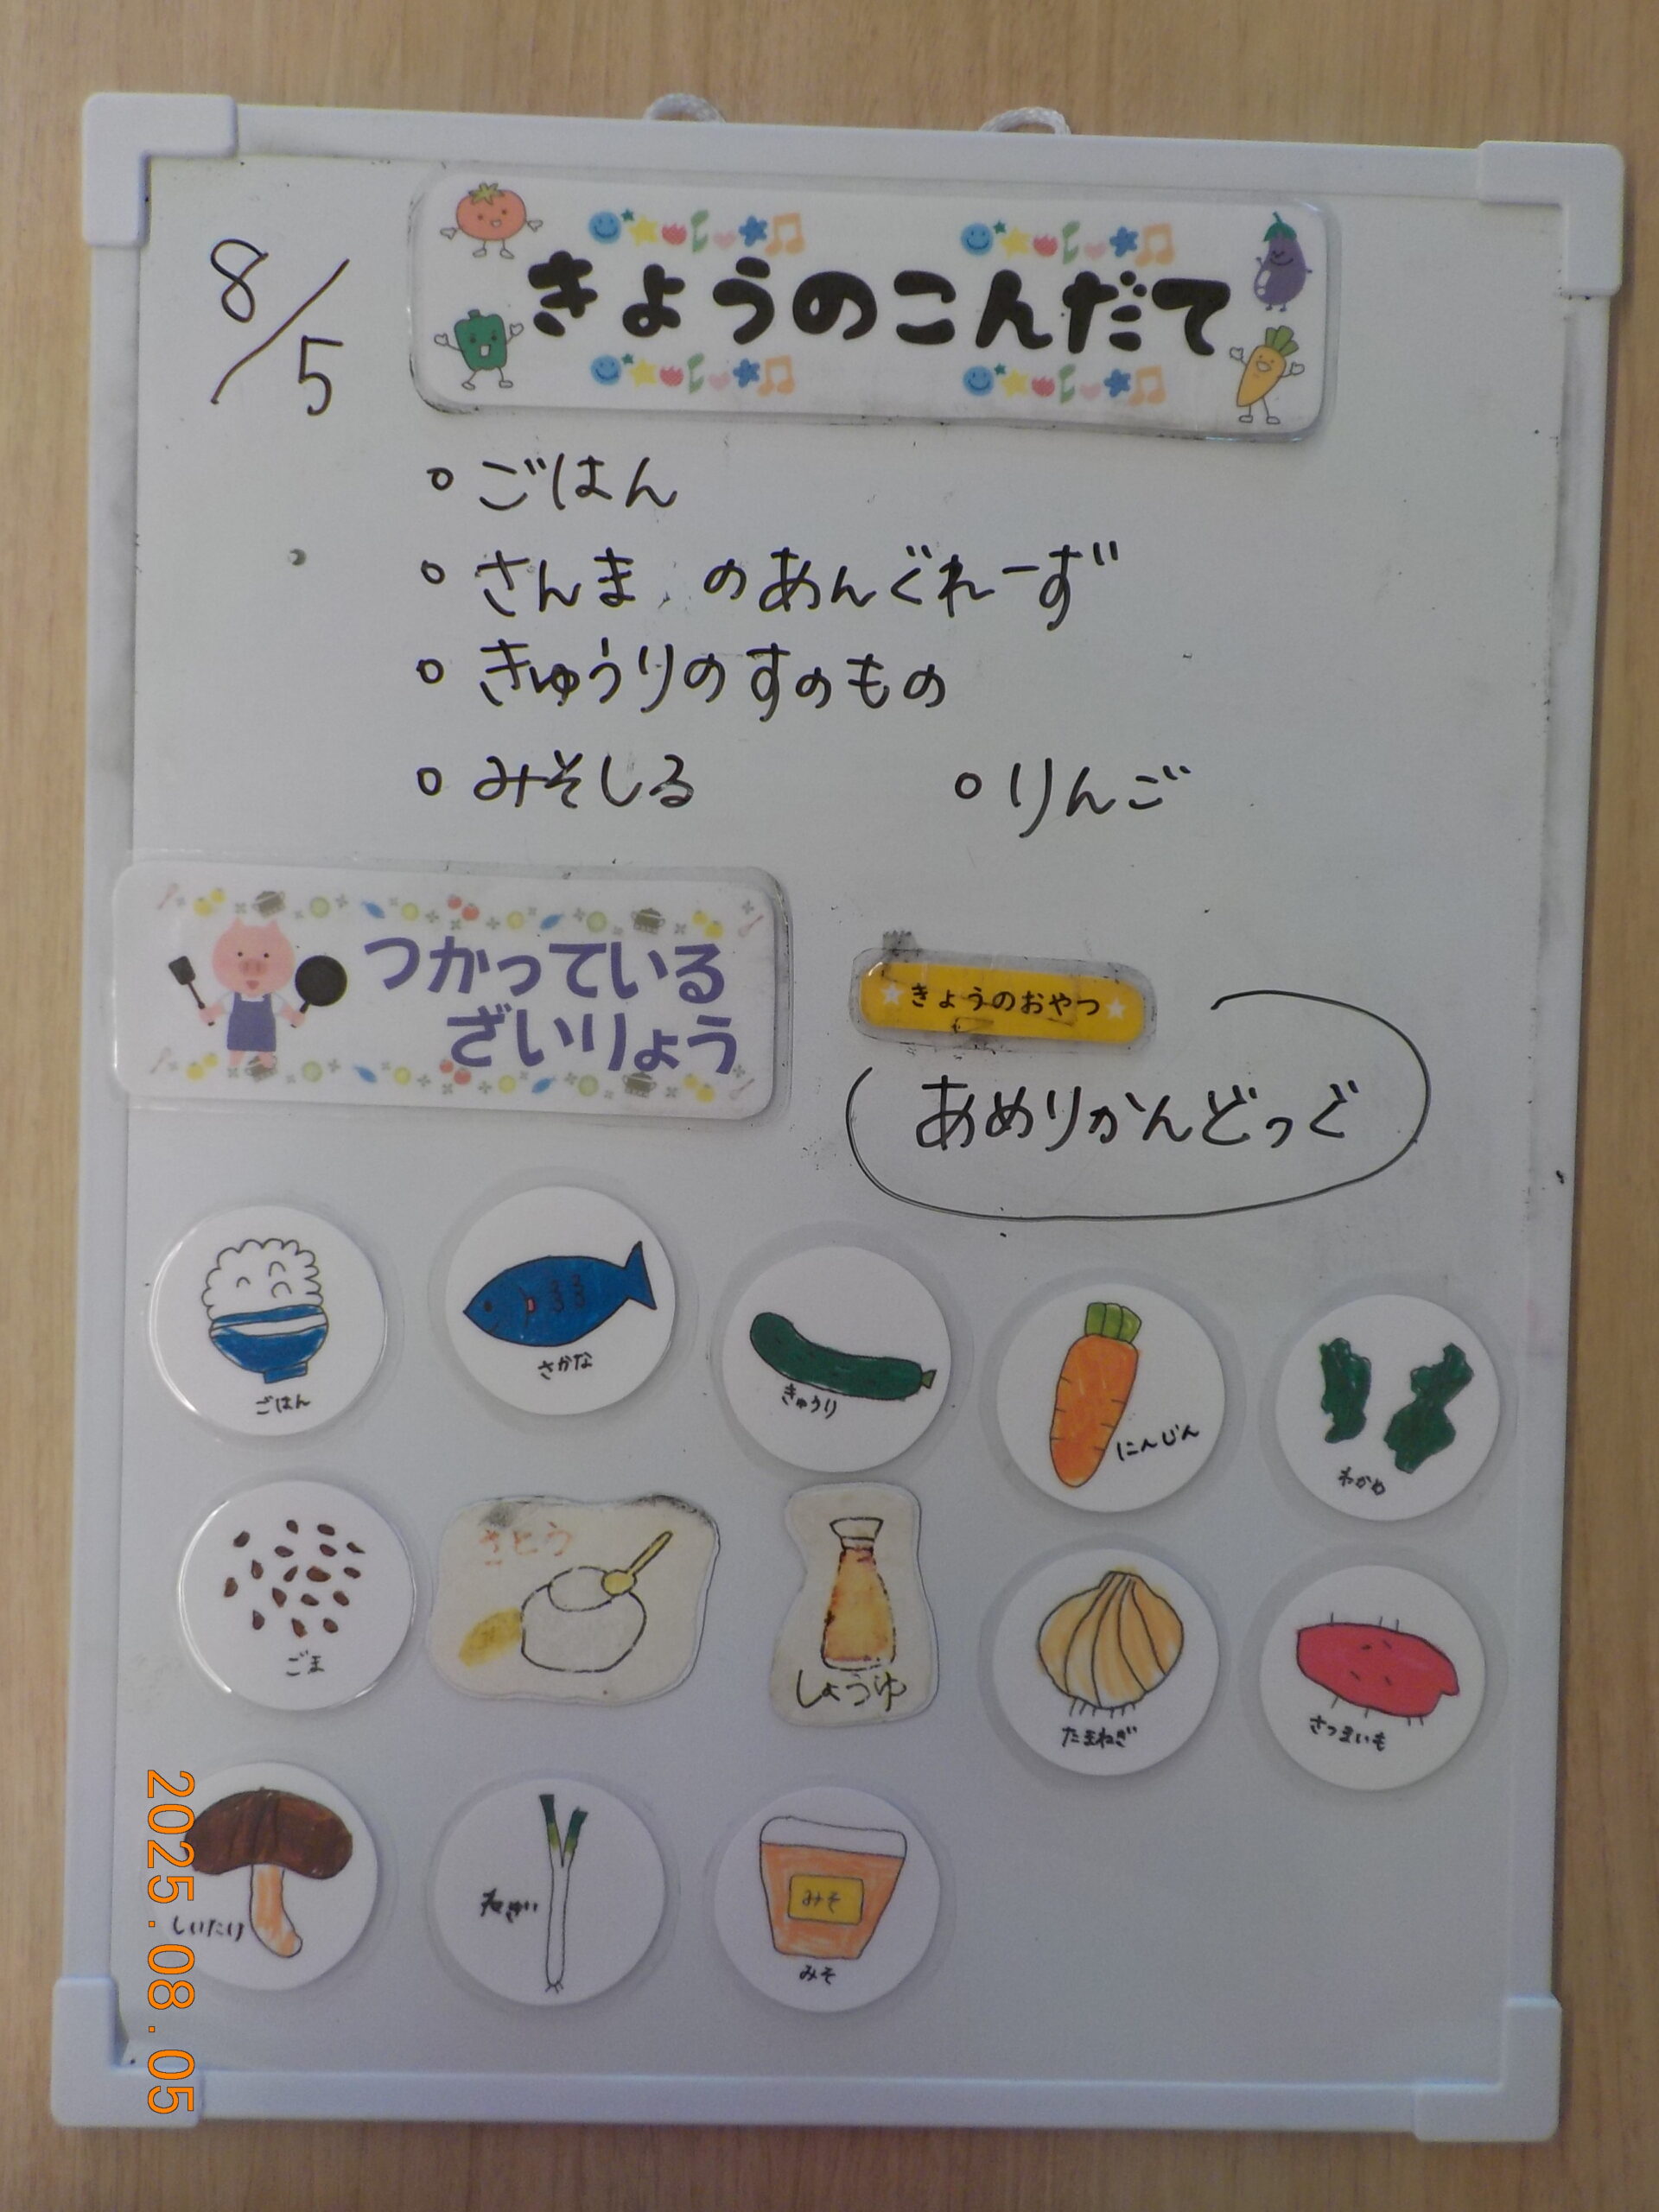 8/5
きょうのこんだて
○ごはん
○さんま のあんぐれーず
○きゅうりのすのもの
○みそしる ○りんご
つかっている
ざいりょう
きょうのおやつ
あめりかんどっぐ
ごはん
さかな
きゅうり
にんじん
わかめ
ごま
さとう
しょうゆ
たまねぎ
さつまいも
しいたけ
ねぎ
みそ
みそ
2025.08.05